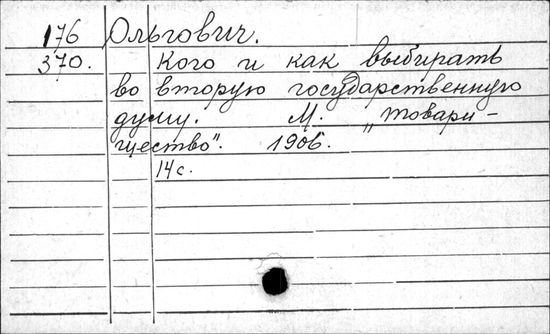 176 Ольгович.
370. Кого и как выбирать
во вторую государственную
думу. М. „Товари-
щество".  1906.
14 с.